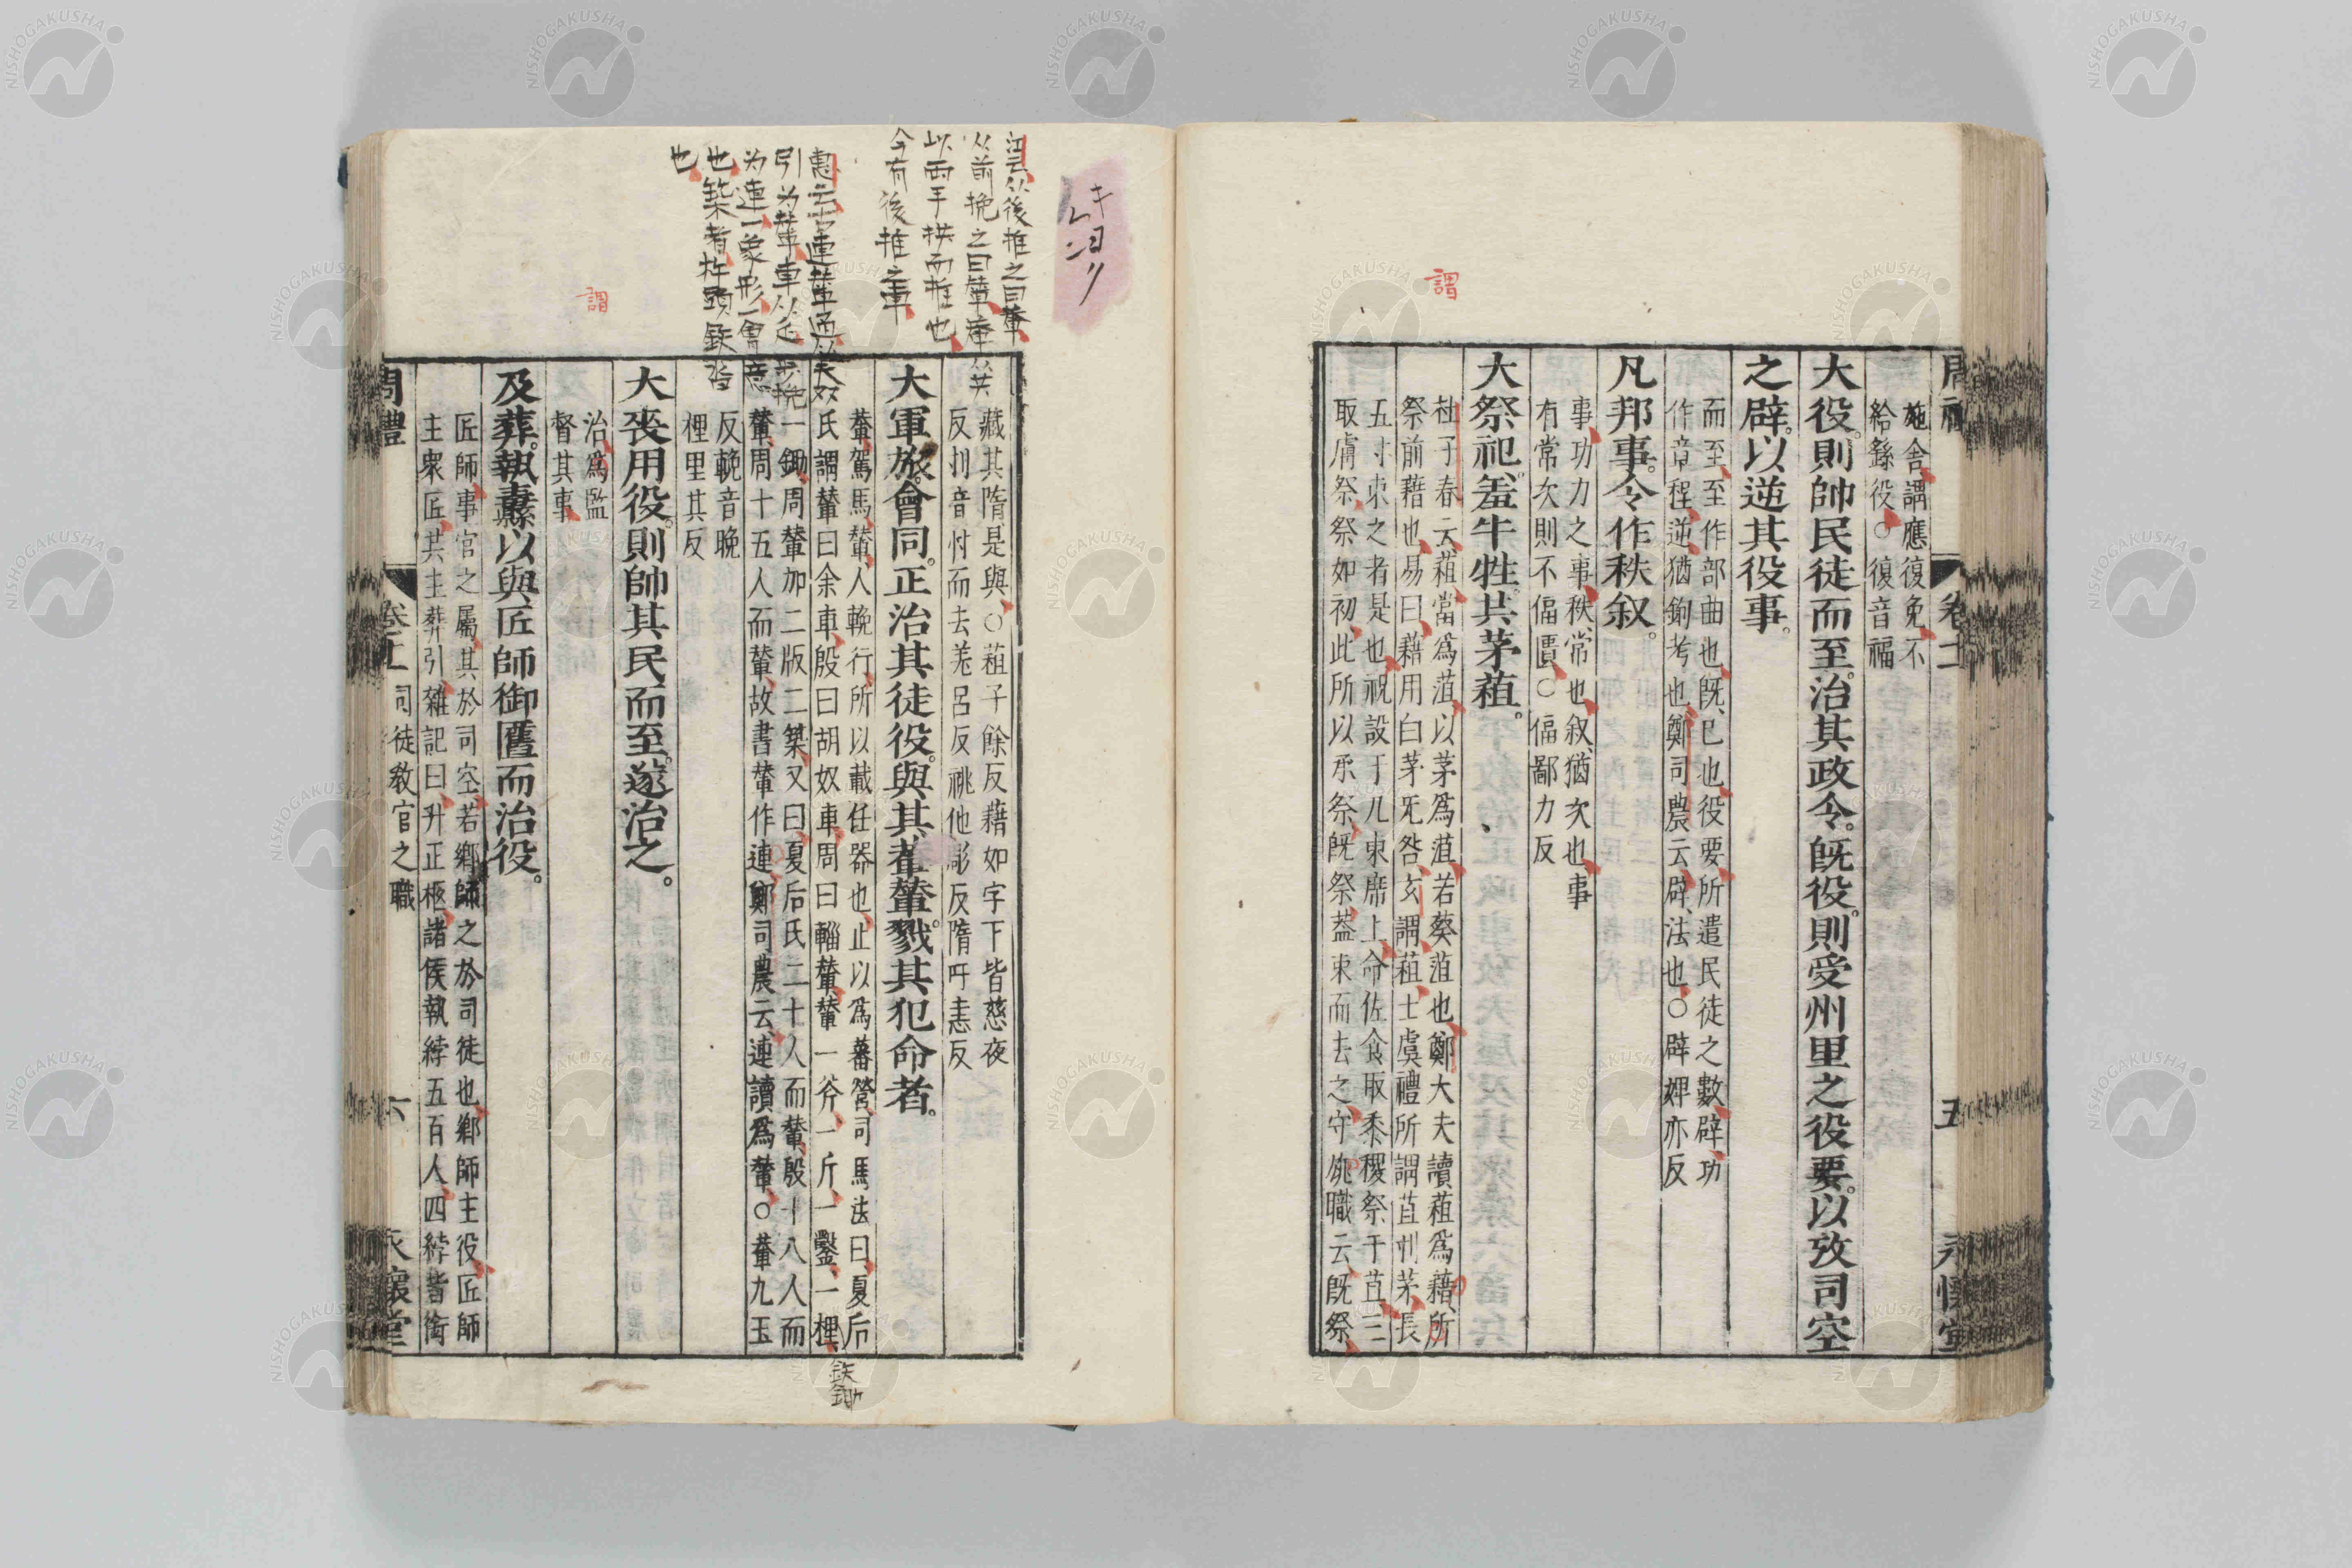 施舍謂應復免不
給繇役○復音福
大役則帥民徒而至治其政令既役則受州里之役要以攷司空
之辟以逆其役事
而至至作部曲也既已也役要所遣民徒之數辟功
作章程逆猶鉤考也鄭司農云辟法也○辟婢亦反
凡邦事令作秩叙
事功力之事秩常也叙猶次也事
有常次則不偪匱○偪鄙力反
大祭祀羞牛牲共茅蒩
杜子春云蒩當為菹以茅為菹若葵菹也鄭大夫讀蒩為藉所
祭前藉也易曰藉用白茅无咎玄謂蒩士虞禮所謂苴刌茅長
五寸束之者是也祝設于几東席上命佐食取黍稷祭于苴三
取膚祭祭如初此所以承祭既祭蓋束而去之守祧職云既祭
謂
藏其隋是與○蒩子餘反藉如字下皆慈夜
反刌音忖而去羌呂反祧他彫反隋吁恚反
大軍旅會同正治其徒役與其輂輦戮其犯命者
輂駕馬輦人輓行所以載任器也止以為蕃營司馬法曰夏后
氏謂輦曰余車殷曰胡奴車周曰輜輦輦一斧一斤一鑿一梩
一鋤周輦加二版二築又曰夏后氏二十人而輦殷十八人而
輦周十五人而輦故書輦作連鄭司農云連讀為輦○輂九玉
反輓音晚
梩里其反
大喪用役則帥其民而至遂治之
治為監
督其事
及葬執纛以與匠師御匶而治役
匠師事官之屬其於司空若鄉師之於司徒也鄉師主役匠師
主眾匠共主葬引雜記曰升正柩諸侯執綍五百人四綍皆銜
周禮 卷十一 司徒教官之職 六 永懷堂
江云从後推之曰輂
从前挽之曰輦輂从共
以兩手拱而推也
今有後推之車
惠云古連輦通从㚘
引為輦車从辵步挽
为連一象形一會意
也築者杵頭鉄沓
也
謂
鉄鋤